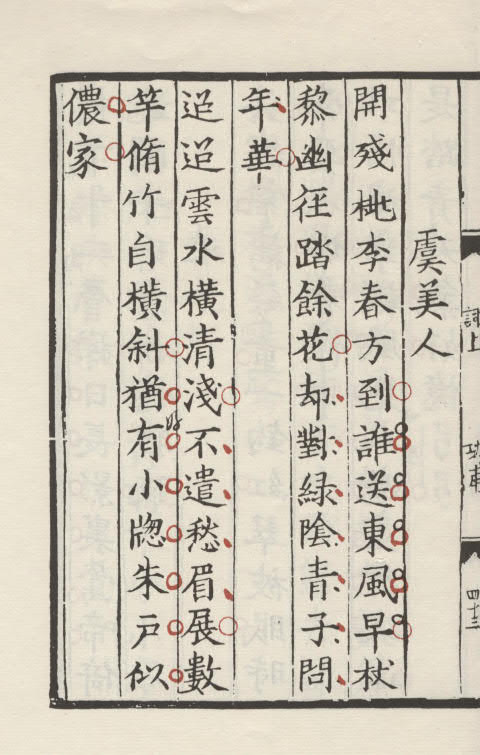 虞美人
開殘桃李春方到誰送東風早杖
黎幽徑踏餘花却對綠陰青子問
年華
迢迢雲水橫清淺不遣愁眉展數
竿脩竹自橫斜猶有小牕朱戶似
儂家
詞上
四十三